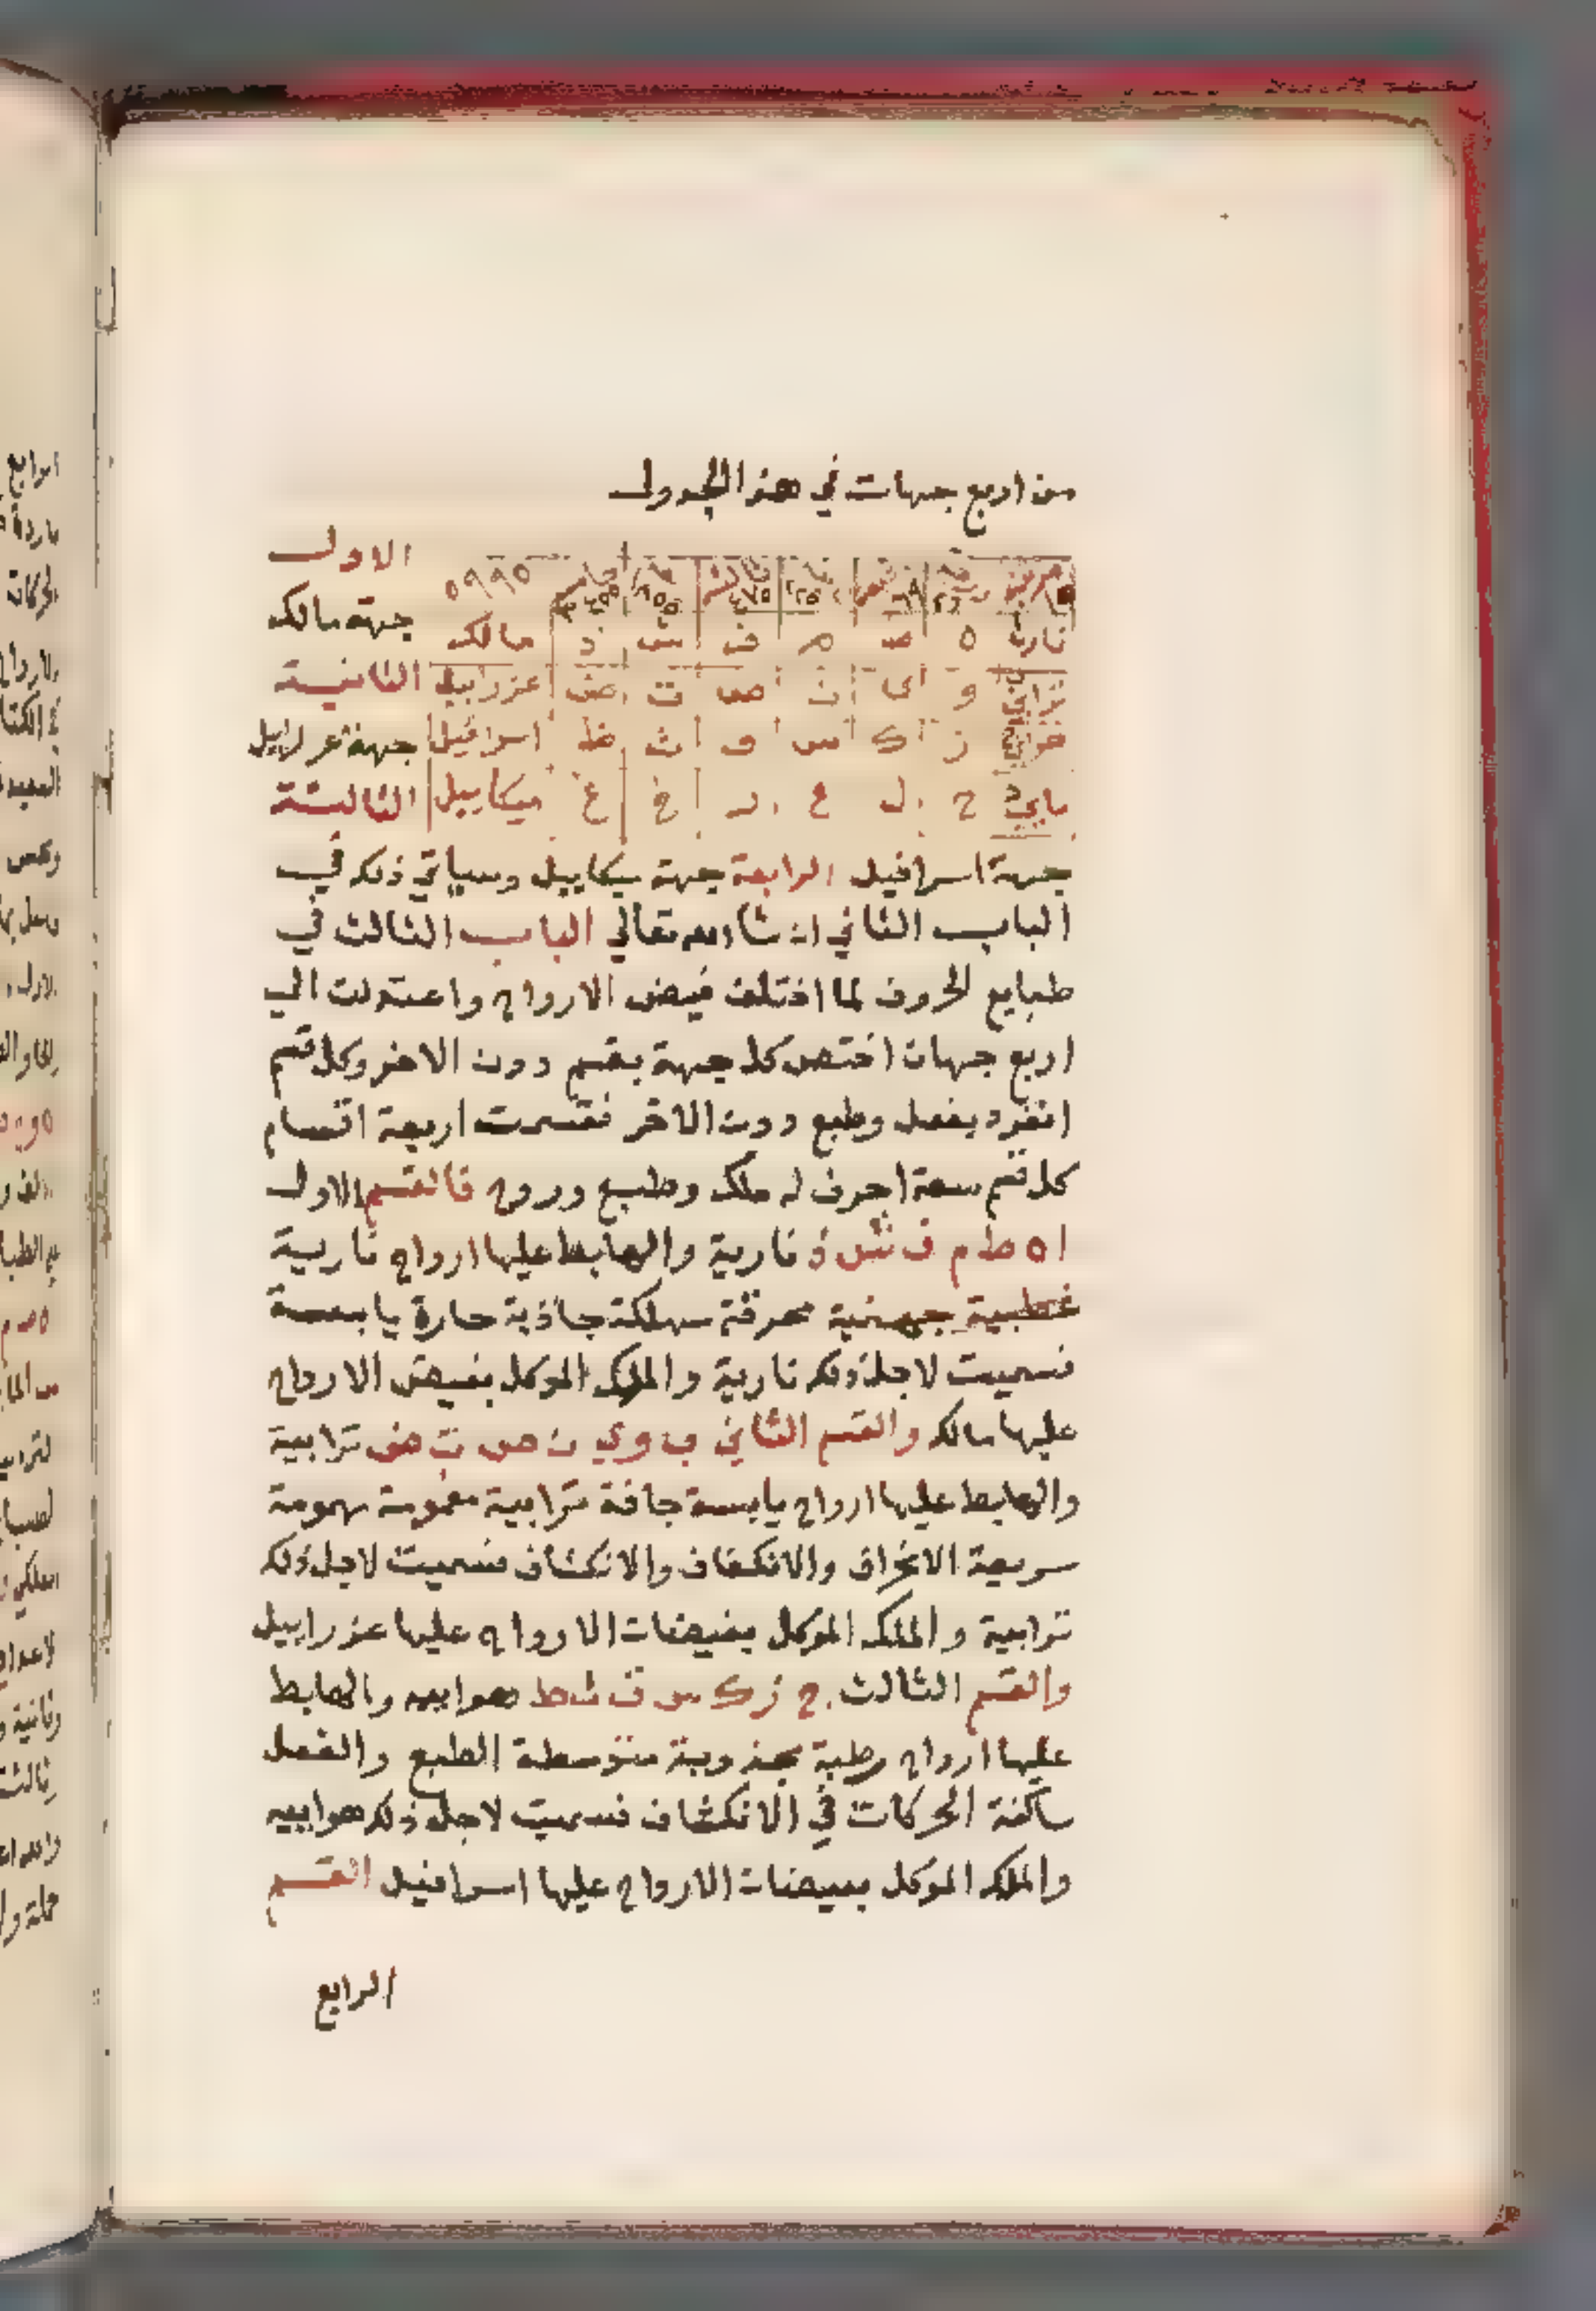 من اربع جهات في هذا الجدول
الاول
جهة مالك
نارية ه ط م ف ش ذ مالك
الثانية
ترابية و ى ن ص ت ض عزراييل
جهة عزراييل
ز ك س ق ث ظ اسرافيل
الثالثة
مايي ح ل ع ر خ غ ميكاييل
جهة اسرافيل الرابعة جهة ميكاييل وسياتي ذلك في
الباب الثاني ان شاء الله تعالي الباب الثالث في
طبايع الحروف لما اختلف فيض الارواح واعتدلت الي
اربع جهات اختص كل جهة بقسم دون الاخر وكل قسم
انفرد بفصل وطبع دون الاخر فقسمت اربعة اقسام
كل قسم سبعة احرف له ملك وطبع وروح فالقسم الاول
ا ه ط م ف ش ذ نارية والهابط عليها ارواح نارية
غضبية جهنمية محرقة مهلكة جاذبة حارة يابسة
فسميت لاجل ذلك نارية والملك الموكل بفيض الارواح
عليها مالك والقسم الثاني ب و ي ن ص ت ض ترابية
والهابط عليها ارواح يابسة جافة ترابية مغمومة مهمومة
سريعة الانخراق والانكفاف والانكشاف فسميت لاجل ذلك
ترابية والملك الموكل بفيضات الارواح عليها عزراييل
والقسم الثالث ج ز ك س ق ث ظ هواييه والهابط
عليها ارواح رطبة مجذوبة متوسطة الطبع والفصل
ساكنة الحركات في الانكشاف فسميت لاجل ذلك هواييه
والملك الموكل بفيضات الارواح عليها اسرافيل القسم
الرابع